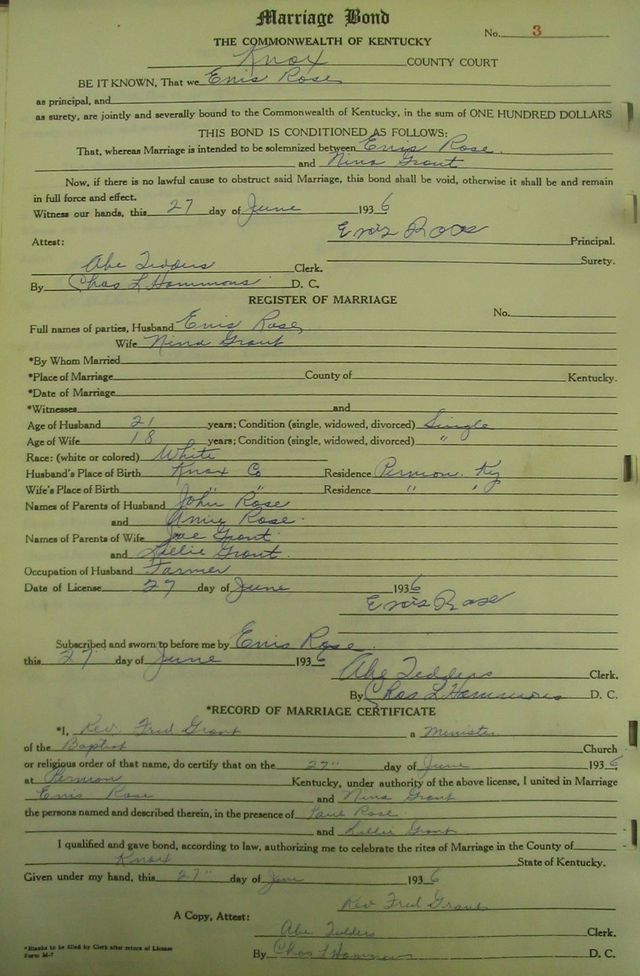 Marriage Bond
No. 3
THE COMMONWEALTH OF KENTUCKY
Knox COUNTY COURT
BE IT KNOWN, That we Enis Rose
as principal, and
as surety, are jointly and severally bound to the Commonwealth of Kentucky, in the sum of ONE HUNDRED DOLLARS
THIS BOND IS CONDITIONED AS FOLLOWS:
That, whereas Marriage is intended to be solemnized between Enis Rose
and Nina Grant
Now, if there is no lawful cause to obstruct said Marriage, this bond shall be void, otherwise it shall be and remain
in full force and effect.
Witness our hands, this 27 day of June 1936
Enis Rose Principal.
Attest:
Surety.
Abe Tedders Clerk.
By Chas L Hammons D. C.
REGISTER OF MARRIAGE
No.
Full names of parties, Husband Enis Rose
Wife Nina Grant
*By Whom Married
*Place of Marriage County of Kentucky.
*Date of Marriage
*Witnesses and
Age of Husband 21 years; Condition (single, widowed, divorced) Single
Age of Wife 18 years; Condition (single, widowed, divorced) "
Race: (white or colored) White
Husband's Place of Birth Knox Co Residence Permon, Ky
Wife's Place of Birth " " Residence " "
Names of Parents of Husband John Rose
and Rose
Names of Parents of Wife Joe Grant
and Lillie Grant
Occupation of Husband Farmer
Date of License 27 day of June 1936
Enis Rose
Subscribed and sworn to before me by Enis Rose
this 27 day of June 1936
Abe Tedders Clerk.
By Chas L Hammons D. C.
*RECORD OF MARRIAGE CERTIFICATE
*I, Rev Fred Grant a Minister
of the Baptist Church
or religious order of that name, do certify that on the 27" day of June 1936
at Permon Kentucky, under authority of the above license, I united in Marriage
Enis Rose and Nina Grant
the persons named and described therein, in the presence of Rose
and Lillie Grant
I qualified and gave bond, according to law, authorizing me to celebrate the rites of Marriage in the County of
Knox State of Kentucky.
Given under my hand, this 27" day of June 1936
Rev Fred Grant
A Copy, Attest:
Abe Tedders Clerk.
*Blanks to be filled by Clerk after return of License
Form M-7
By Chas L Hammons D. C.